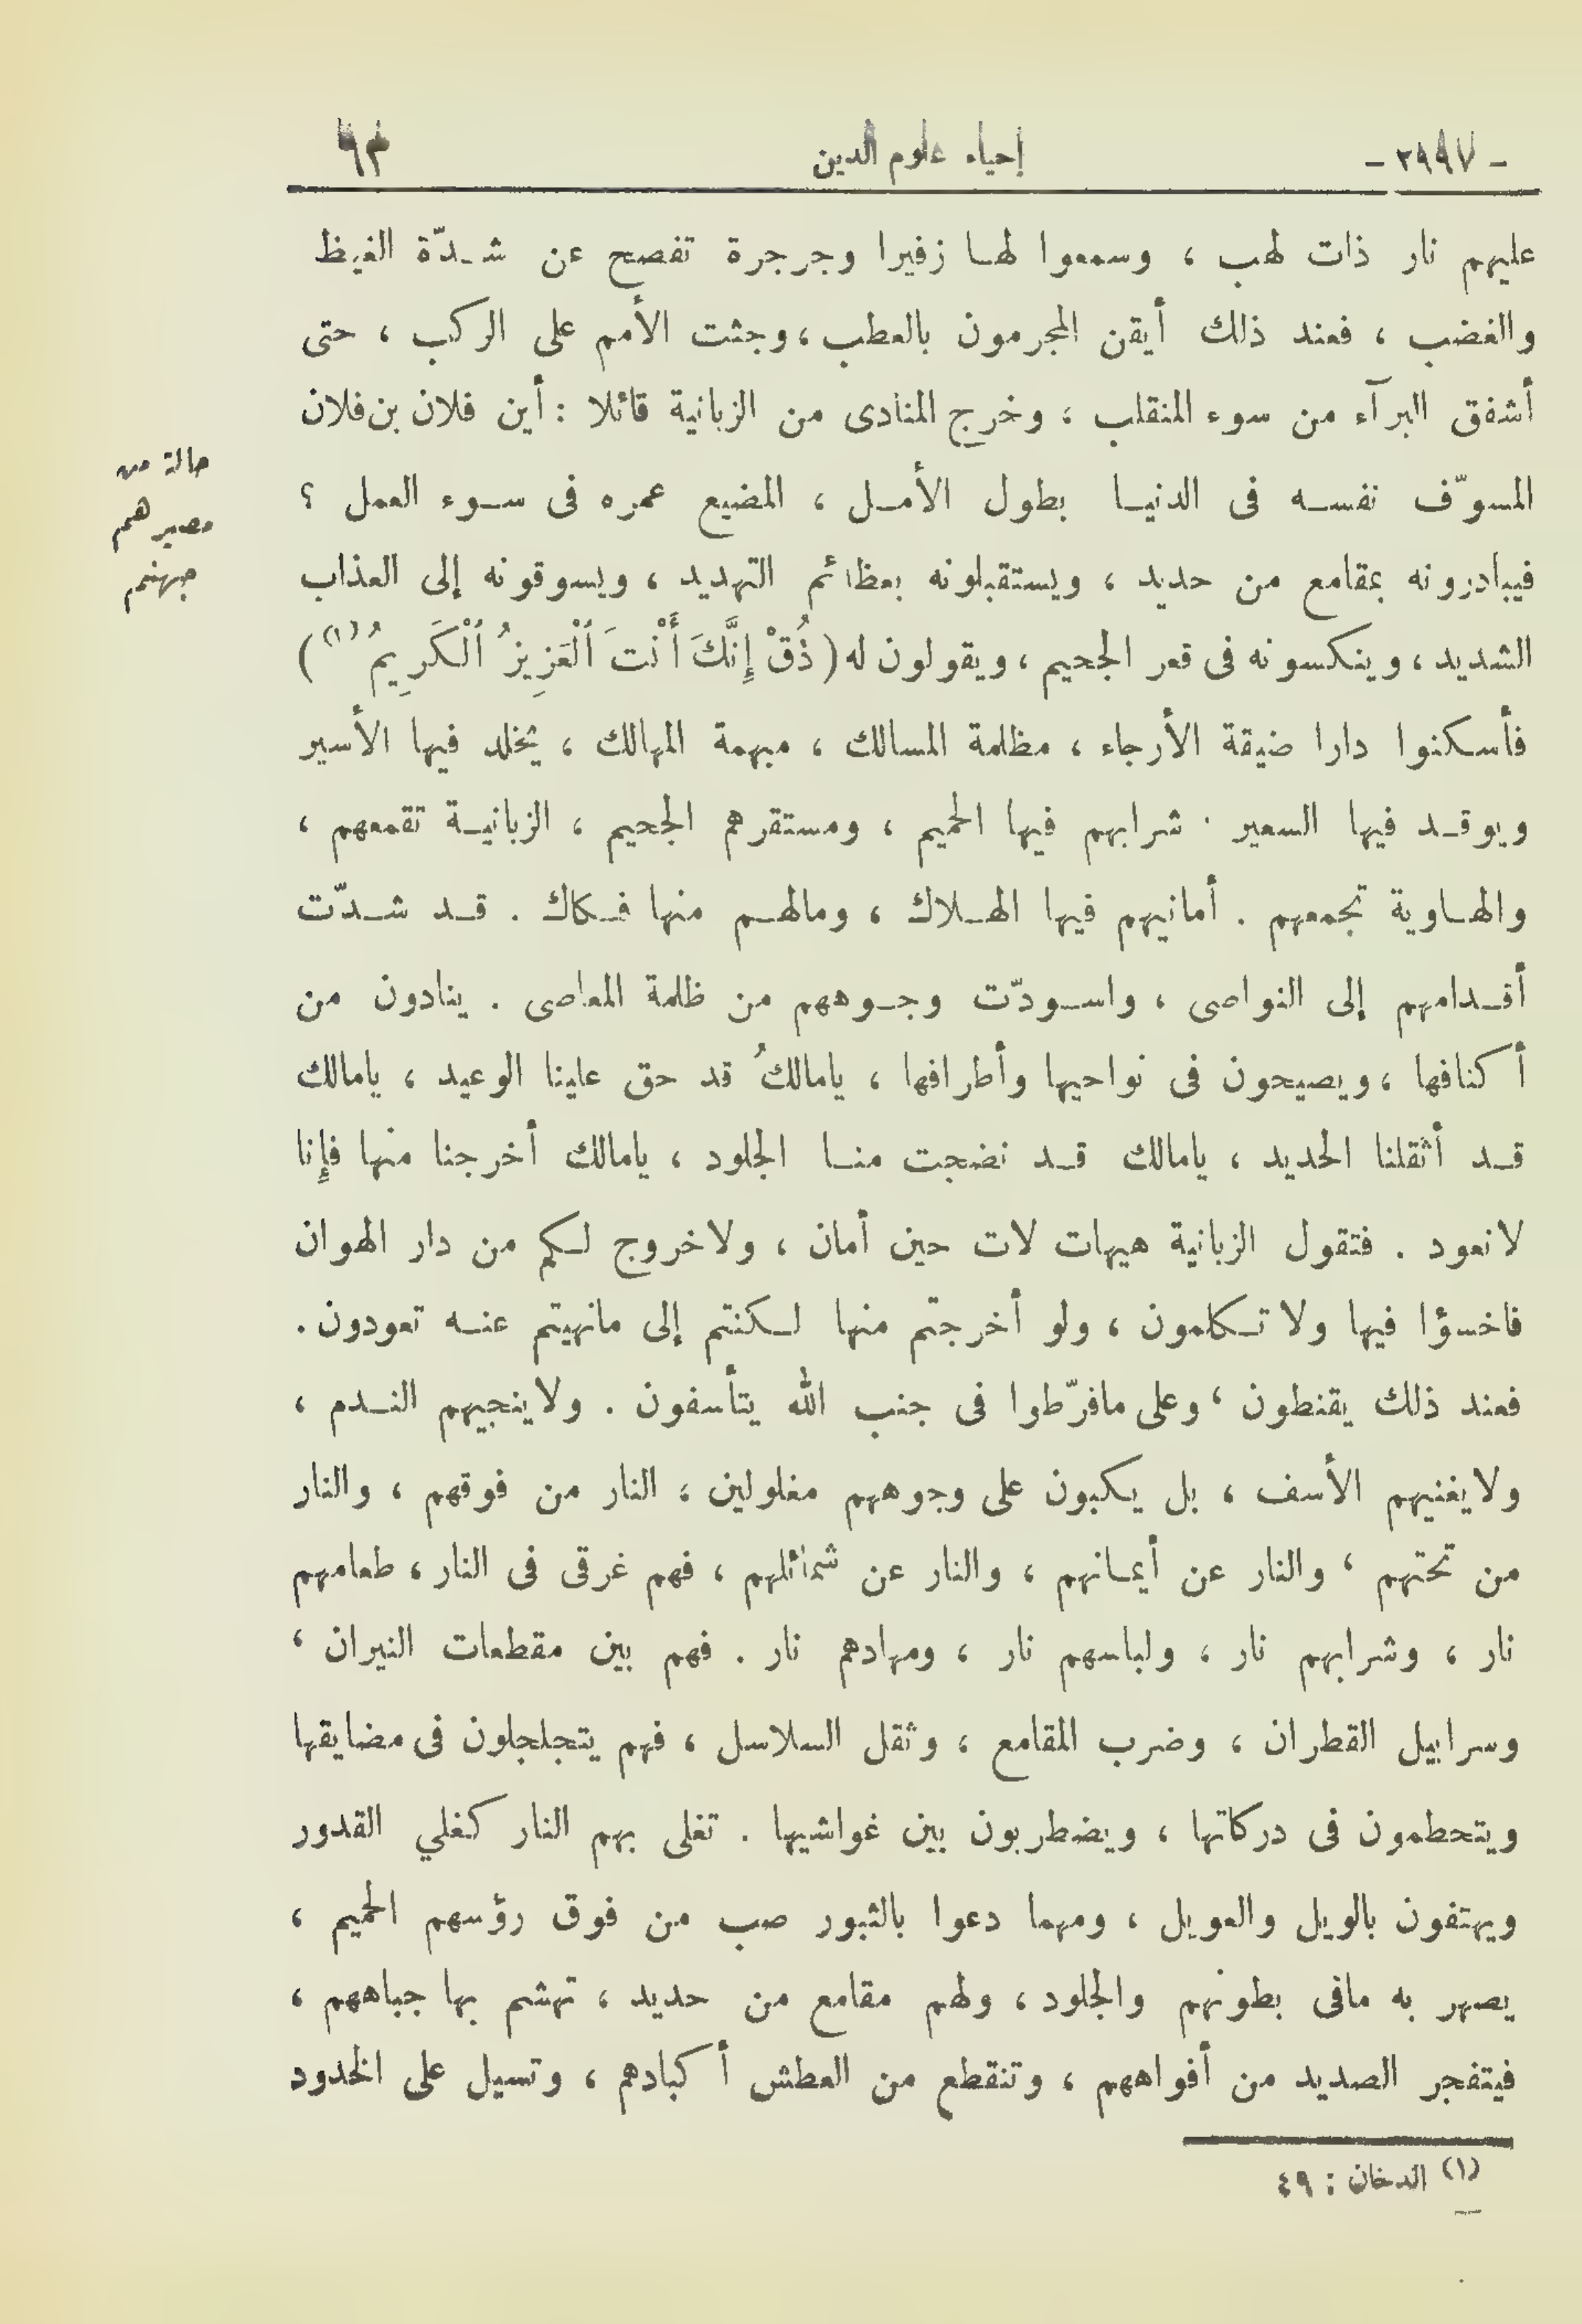 - ٢٩٩٧ -
إحياء علوم الدين
٩٣
عليهم نار ذات لهب ، وسمعوا لها زفيرا وجرجرة تفصح عن شدّة الغيظ
والغضب ، فعند ذلك أيقن المجرمون بالعطب ، وجثت الأمم على الركب ، حتى
أشفق البرآء من سوء المنقلب ، وخرج المنادى من الزبانية قائلا : أين فلان بن فلان
المسوّف نفسه فى الدنيا بطول الأمل ، المضيع عمره فى سوء العمل ؟
فيبادرونه بمقامع من حديد ، ويستقبلونه بعظائم التهديد ، ويسوقونه إلى العذاب
الشديد ، وينكسونه فى قعر الجحيم ، ويقولون له ( ذُقْ إِنَّكَ أَنْتَ ٱلْعَزِيزُ ٱلْكَرِيمُ (١) )
فأسكنوا دارا ضيقة الأرجاء ، مظلمة المسالك ، مبهمة المهالك ، يخلد فيها الأسير
ويوقد فيها السعير . شرابهم فيها الحميم ، ومستقرهم الجحيم ، الزبانية تقمعهم ،
والهاوية تجمعهم . أمانيهم فيها الهلاك ، ومالهم منها فكاك . قد شدّت
أقدامهم إلى النواصى ، واسودّت وجوههم من ظلمة المعاصى . ينادون من
أكنافها ، ويصيحون فى نواحيها وأطرافها ، يامالكُ قد حق علينا الوعيد ، يامالك
قد أثقلنا الحديد ، يامالك قد نضجت منا الجلود ، يامالك أخرجنا منها فإنا
لانعود . فتقول الزبانية هيهات لات حين أمان ، ولاخروج لكم من دار الهوان
فاخسؤا فيها ولا تكلمون ، ولو أخرجتم منها لكنتم إلى مانهيتم عنه تعودون .
فعند ذلك يقنطون ، وعلى مافرّطوا فى جنب الله يتأسفون . ولاينجيهم الندم ،
ولايغنيهم الأسف ، بل يكبون على وجوههم مغلولين ، النار من فوقهم ، والنار
من تحتهم ، والنار عن أيمانهم ، والنار عن شمائلهم ، فهم غرقى فى النار ، طعامهم
نار ، وشرابهم نار ، ولباسهم نار ، ومهادهم نار . فهم بين مقطعات النيران ،
وسرابيل القطران ، وضرب المقامع ، وثقل السلاسل ، فهم يتجلجلون فى مضايقها
ويتحطمون فى دركاتها ، ويضطربون بين غواشيها . تغلى بهم النار كغلي القدور
ويهتفون بالويل والعويل ، ومهما دعوا بالثبور صب من فوق رؤسهم الحميم ،
يصهر به مافى بطونهم والجلود ، ولهم مقامع من حديد ، تهشم بها جباههم ،
فيتفجر الصديد من أفواههم ، وتنقطع من العطش أكبادهم ، وتسيل على الخدود
حالة من
مصيرهم
جهنم
(١) الدخان : ٤٩